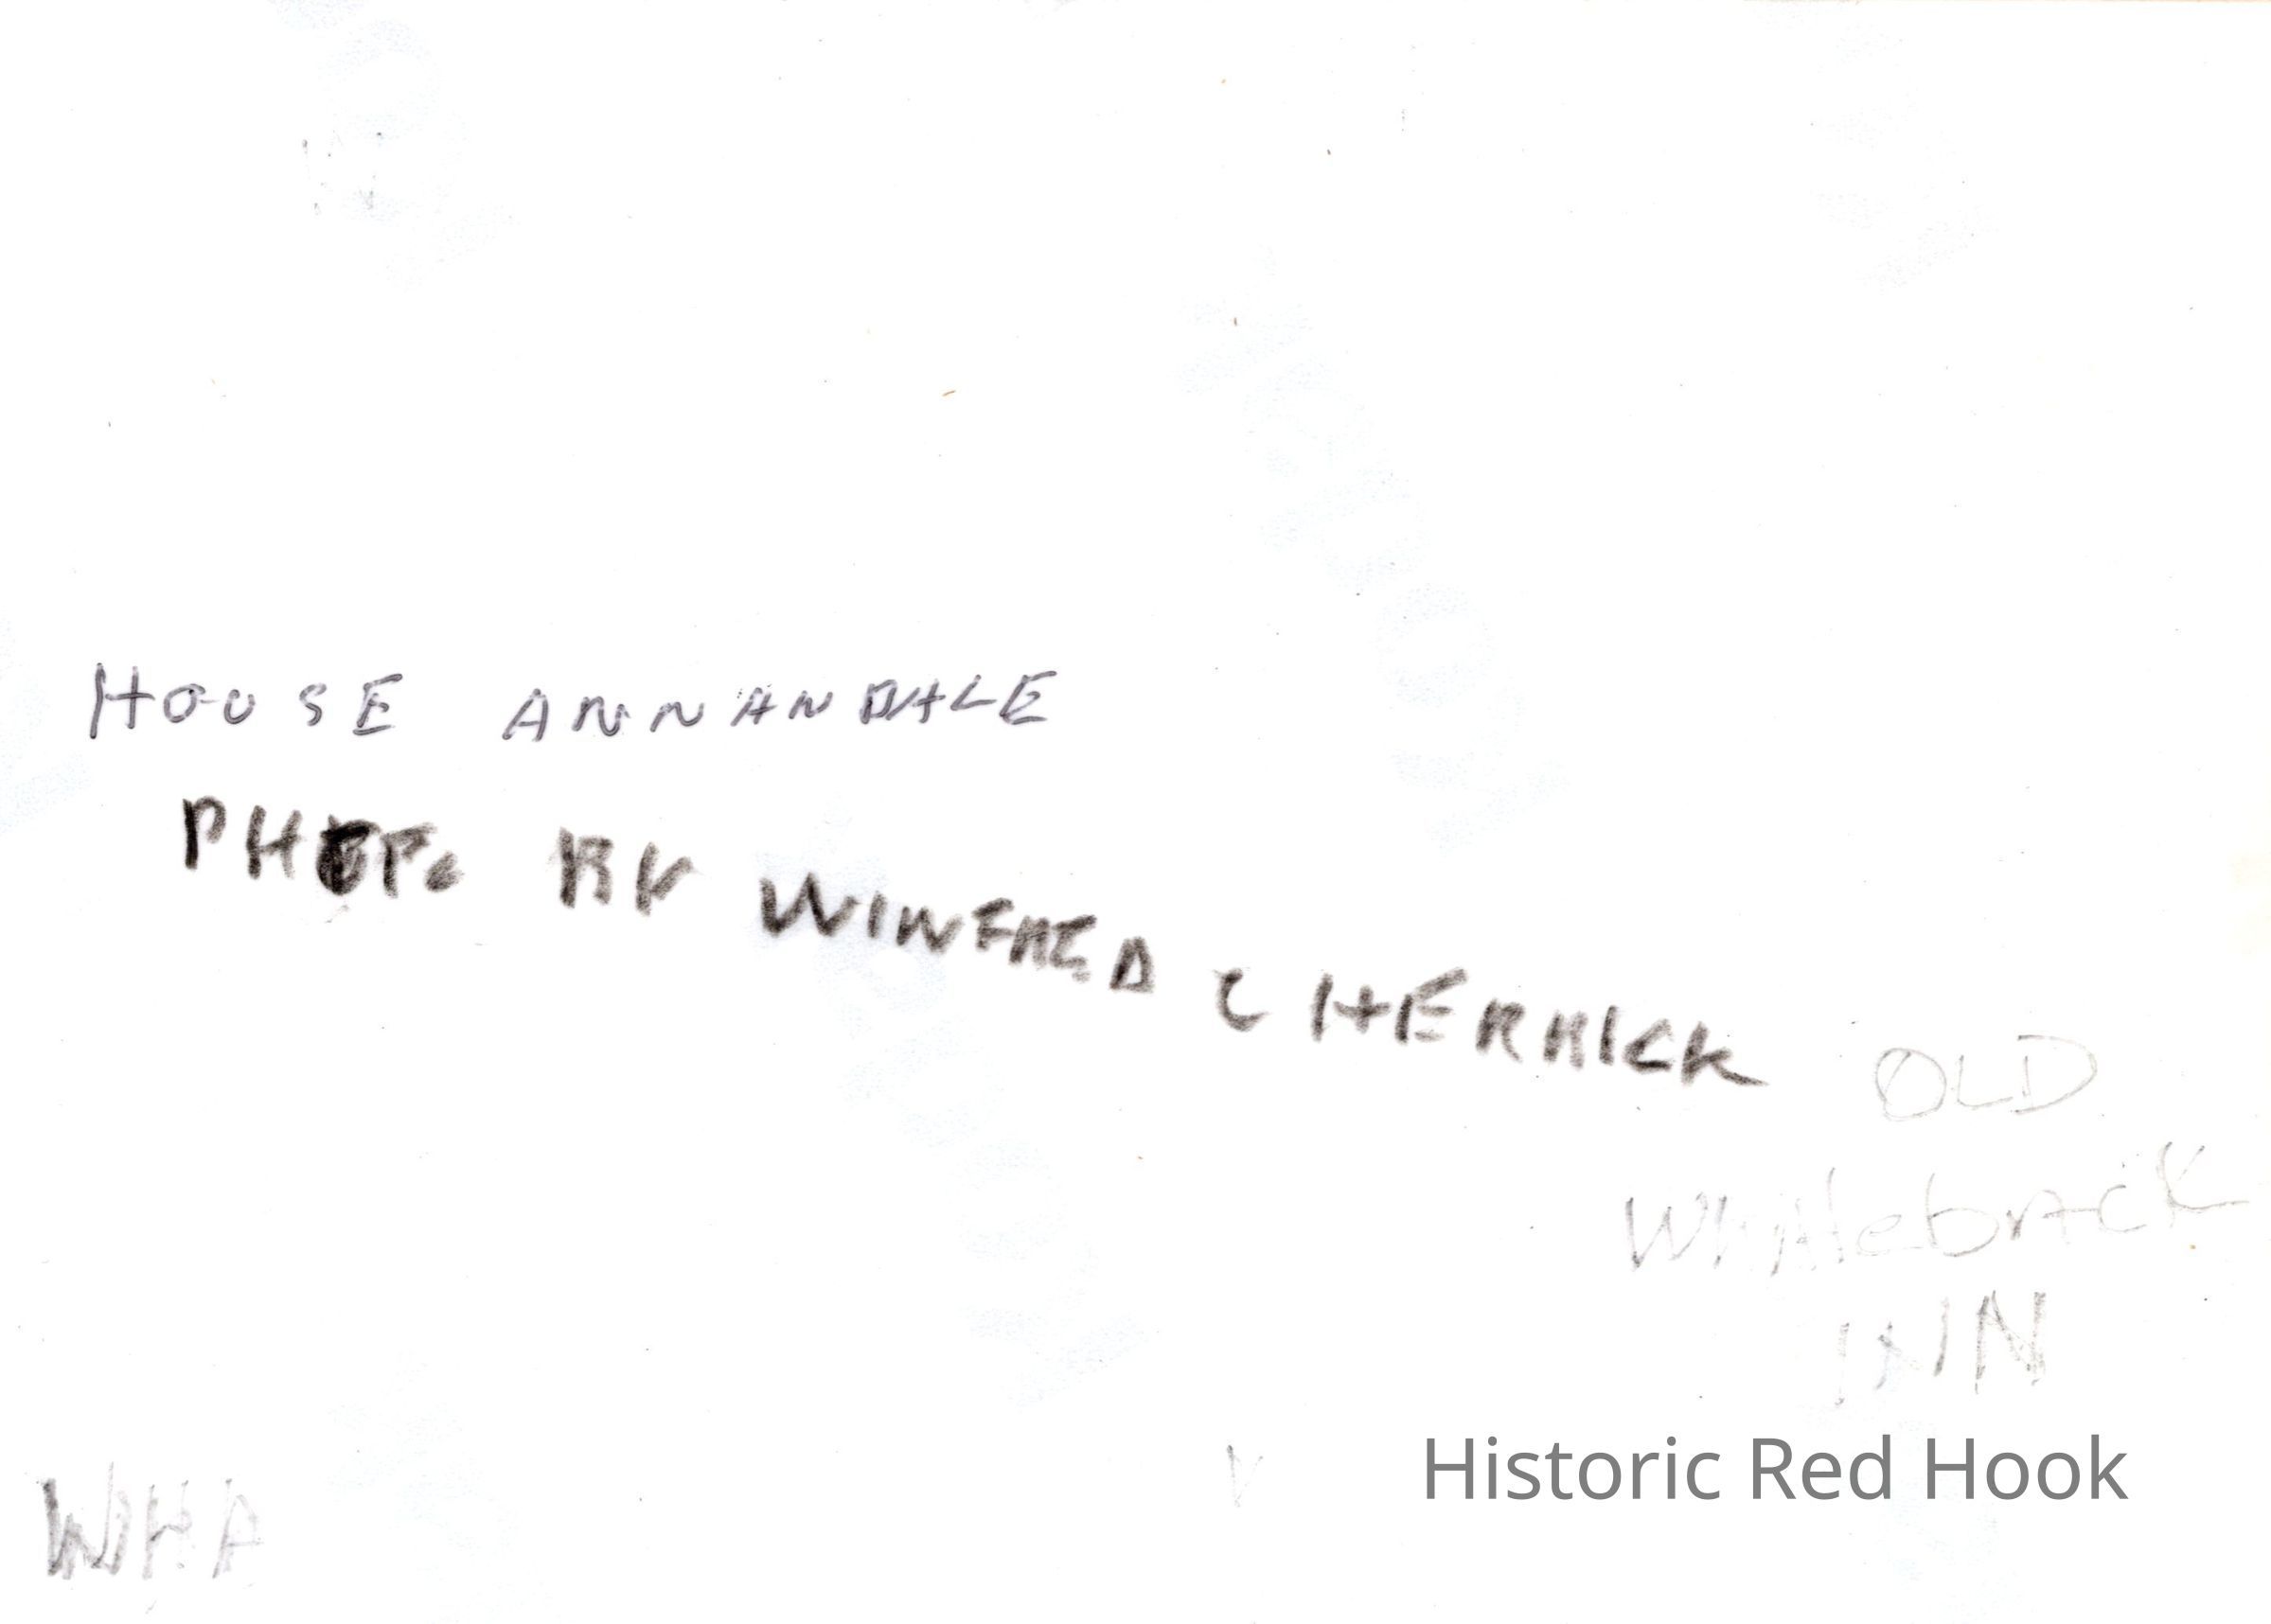 HOUSE ANNANDALE
PHOTO BY WINFRED C HERRICK
OLD
WhAlebAcK
INN
Historic Red Hook
WHA